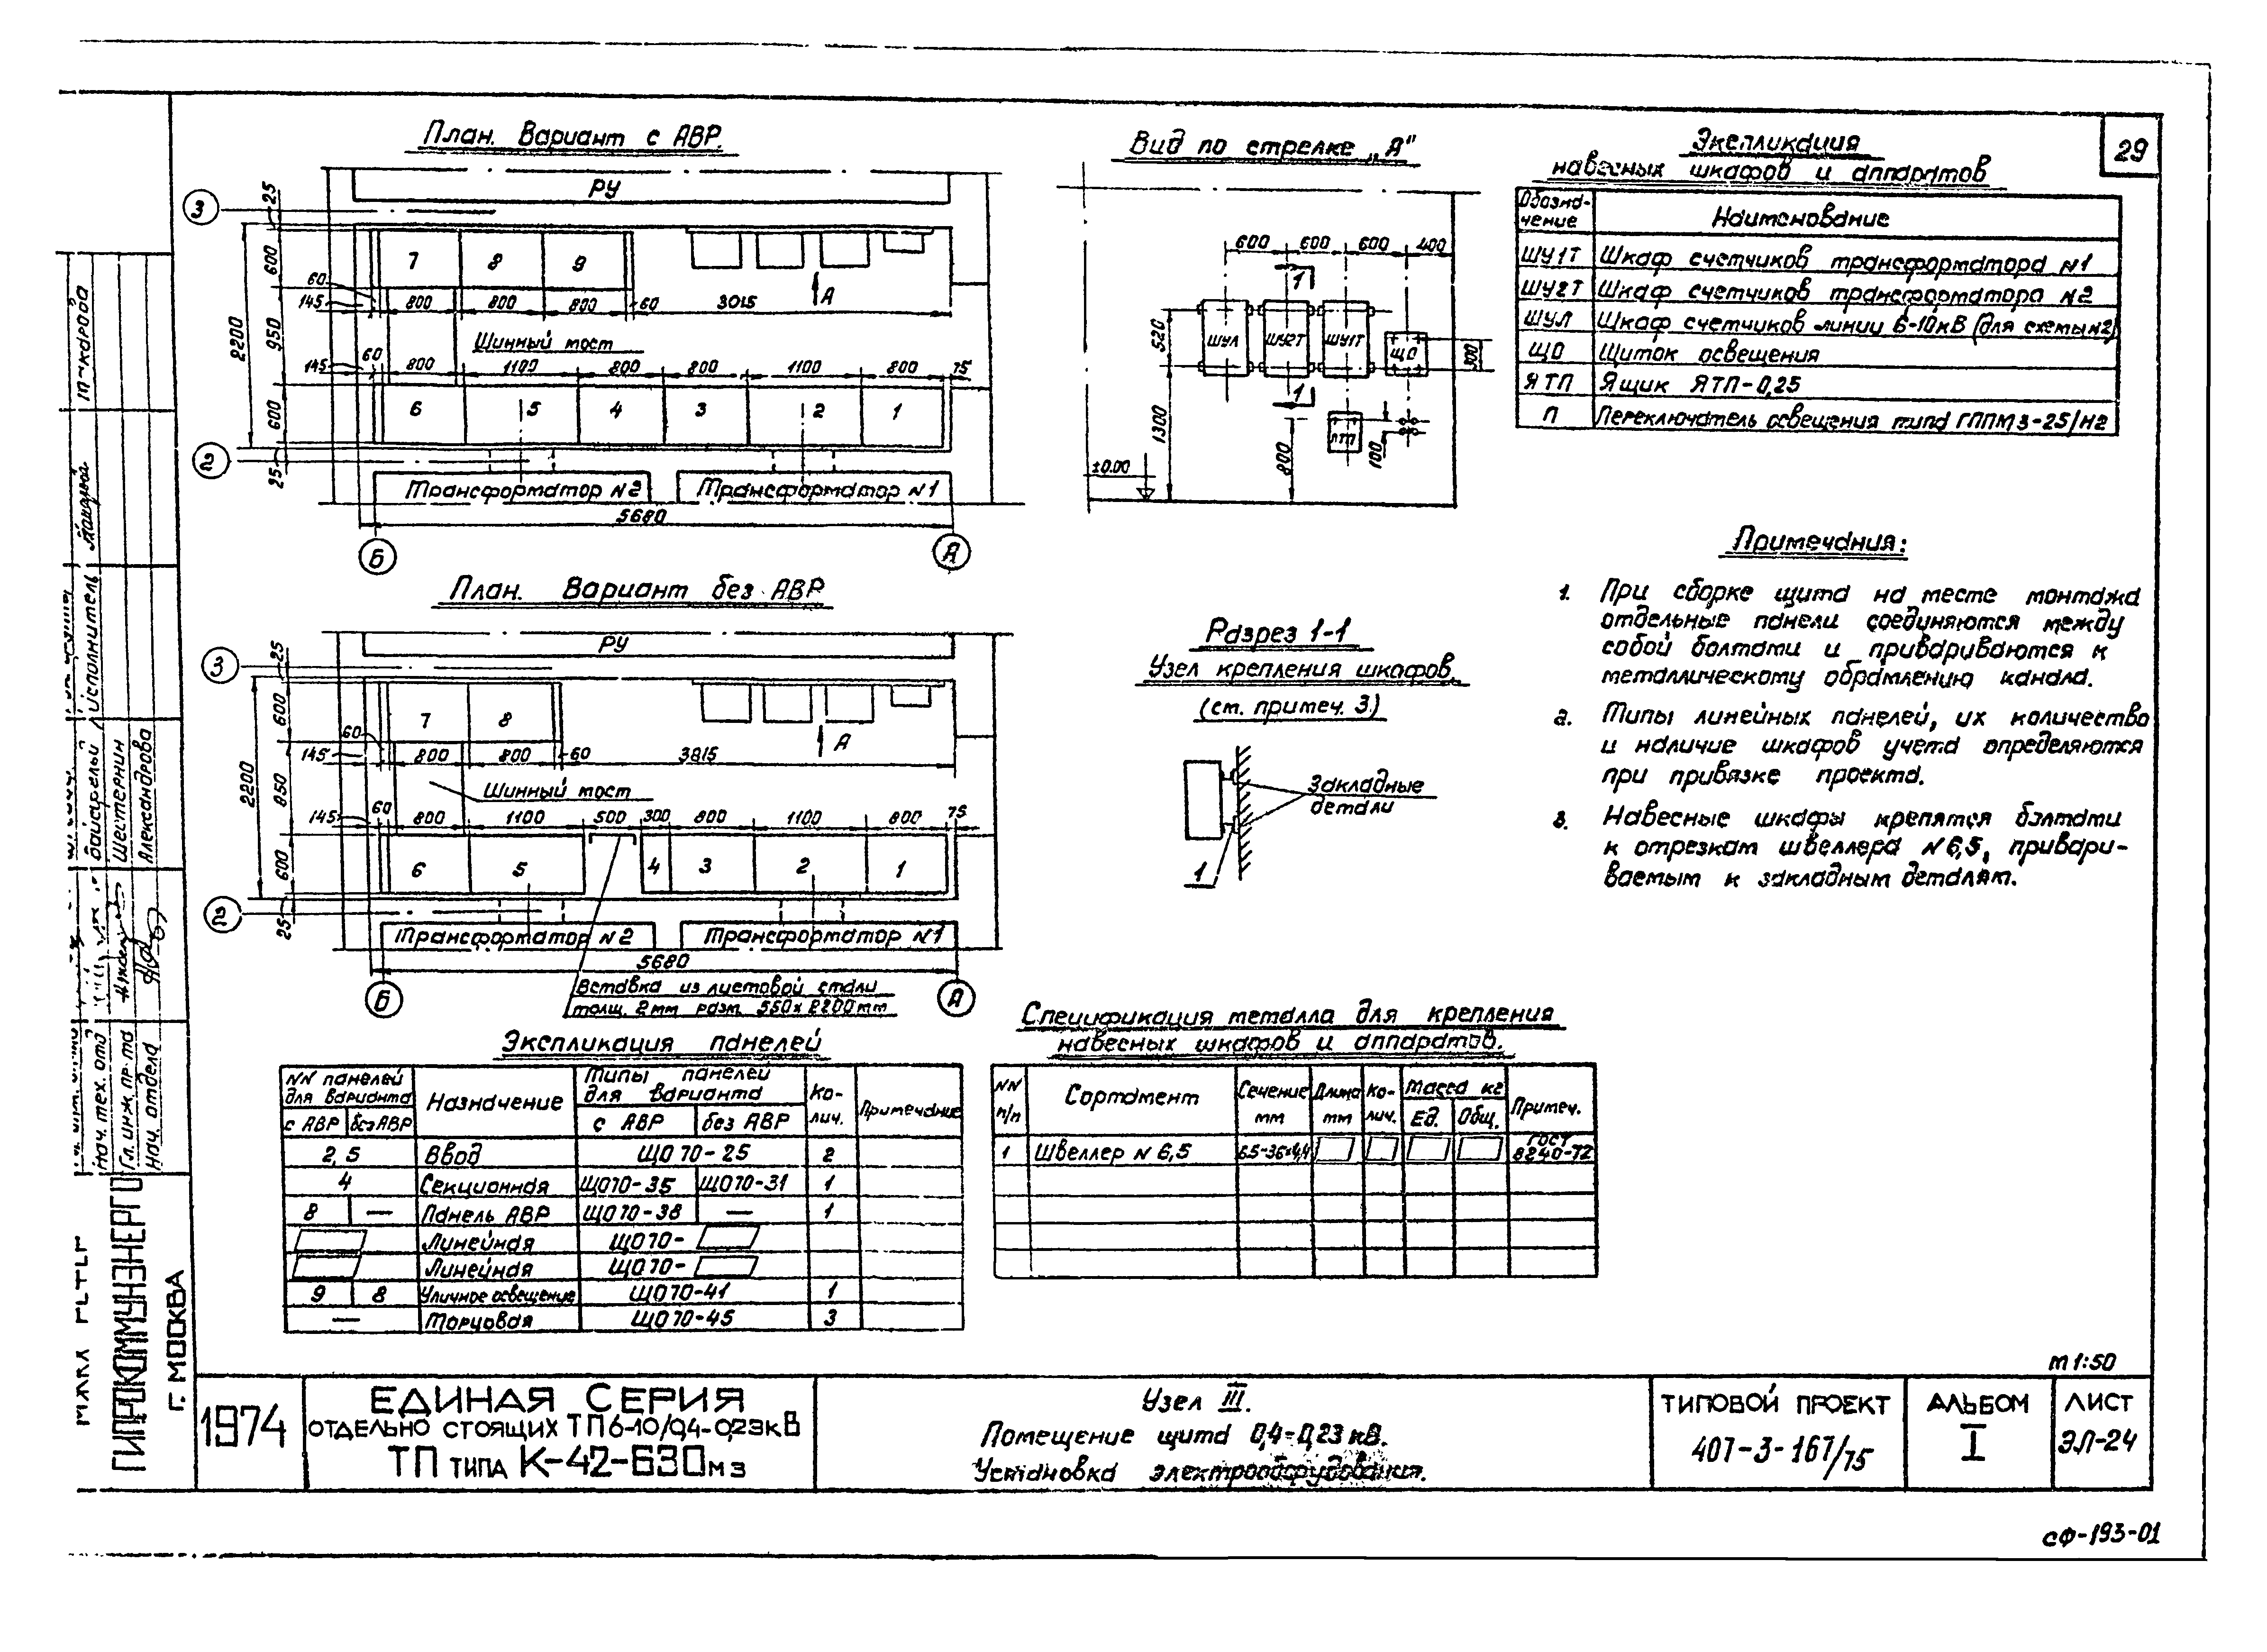 29
План. Вариант с АВР.
РУ
3
25
600
950
2200
600
25
2
7
8
9
60
145
800
800
800
60
3015
А
Шинный мост
60
145
800
1100
800
800
1100
800
75
6
5
4
3
2
1
Трансформатор №2
Трансформатор №1
5680
Б
А
План. Вариант без АВР
РУ
3
25
600
850
2200
600
25
2
7
8
60
145
800
800
60
3815
А
Шинный мост
60
145
800
1100
500
300
800
1100
800
75
6
5
4
3
2
1
Трансформатор №2
Трансформатор №1
5680
Б
А
Вставка из листовой стали
толщ. 2мм разм. 550х2200мм
Вид по стрелке „А"
600
600
600
400
1
520
ШУЛ
ШУ2Т
ШУ1Т
ЩО
300
1
1300
800
ЯТП
100
±0.00
Разрез 1-1
Узел крепления шкафов
(см. примеч. 3)
Закладные
детали
1
Экспликация
навесных шкафов и аппаратов
Обозна-
чение
Наименование
ШУ1Т Шкаф счетчиков трансформатора №1
ШУ2Т Шкаф счетчиков трансформатора №2
ШУЛ Шкаф счетчиков линии 6-10кВ (для схемы№2)
ЩО Щиток освещения
ЯТП Ящик ЯТП-0,25
П Переключатель освещения типа ГППМ3-25/Н2
Примечания:
1. При сборке щита на месте монтажа
отдельные панели соединяются между
собой болтами и привариваются к
металлическому обрамлению канала.
2. Типы линейных панелей, их количество
и наличие шкафов учета определяются
при привязке проекта.
3. Навесные шкафы крепятся болтами
к отрезкам швеллера №6,5, привари-
ваемым к закладным деталям.
Экспликация панелей
NN панелей
для варианта
с АВР без АВР
Назначение
Типы панелей
для варианта
с АВР без АВР
Ко-
лич.
Примечание
2, 5 Ввод ЩО70-25 2
4 Секционная ЩО70-35 ЩО70-31 1
8 — Панель АВР ЩО70-38 — 1
Линейная ЩО70-
Линейная ЩО70-
9 8 Уличное освещение ЩО70-41 1
— Торцовая ЩО70-45 3
Спецификация металла для крепления
навесных шкафов и аппаратов.
NN
п/п
Сортамент
Сечение
мм
Длина
мм
Ко-
лич.
Масса кг
Ед. Общ.
Примеч.
1 Швеллер №6,5 65×36×4,4 ГОСТ
8240-72
м 1:50
1974
ЕДИНАЯ СЕРИЯ
ОТДЕЛЬНО СТОЯЩИХ ТП 6-10/0,4-0,23кВ
ТП ТИПА К-42-630м3
Узел III.
Помещение щита 0,4-0,23 кВ.
Установка электрооборудования.
ТИПОВОЙ ПРОЕКТ
407-3-167/75
АЛЬБОМ
I
ЛИСТ
ЭЛ-24
СФ-193-01
ГИПРОКОММУНЭНЕРГО
Г. МОСКВА
Нач. тех. отд
Гл. инж. пр-та
Нач. отдела
Шестернин
Александрова
Исполнитель